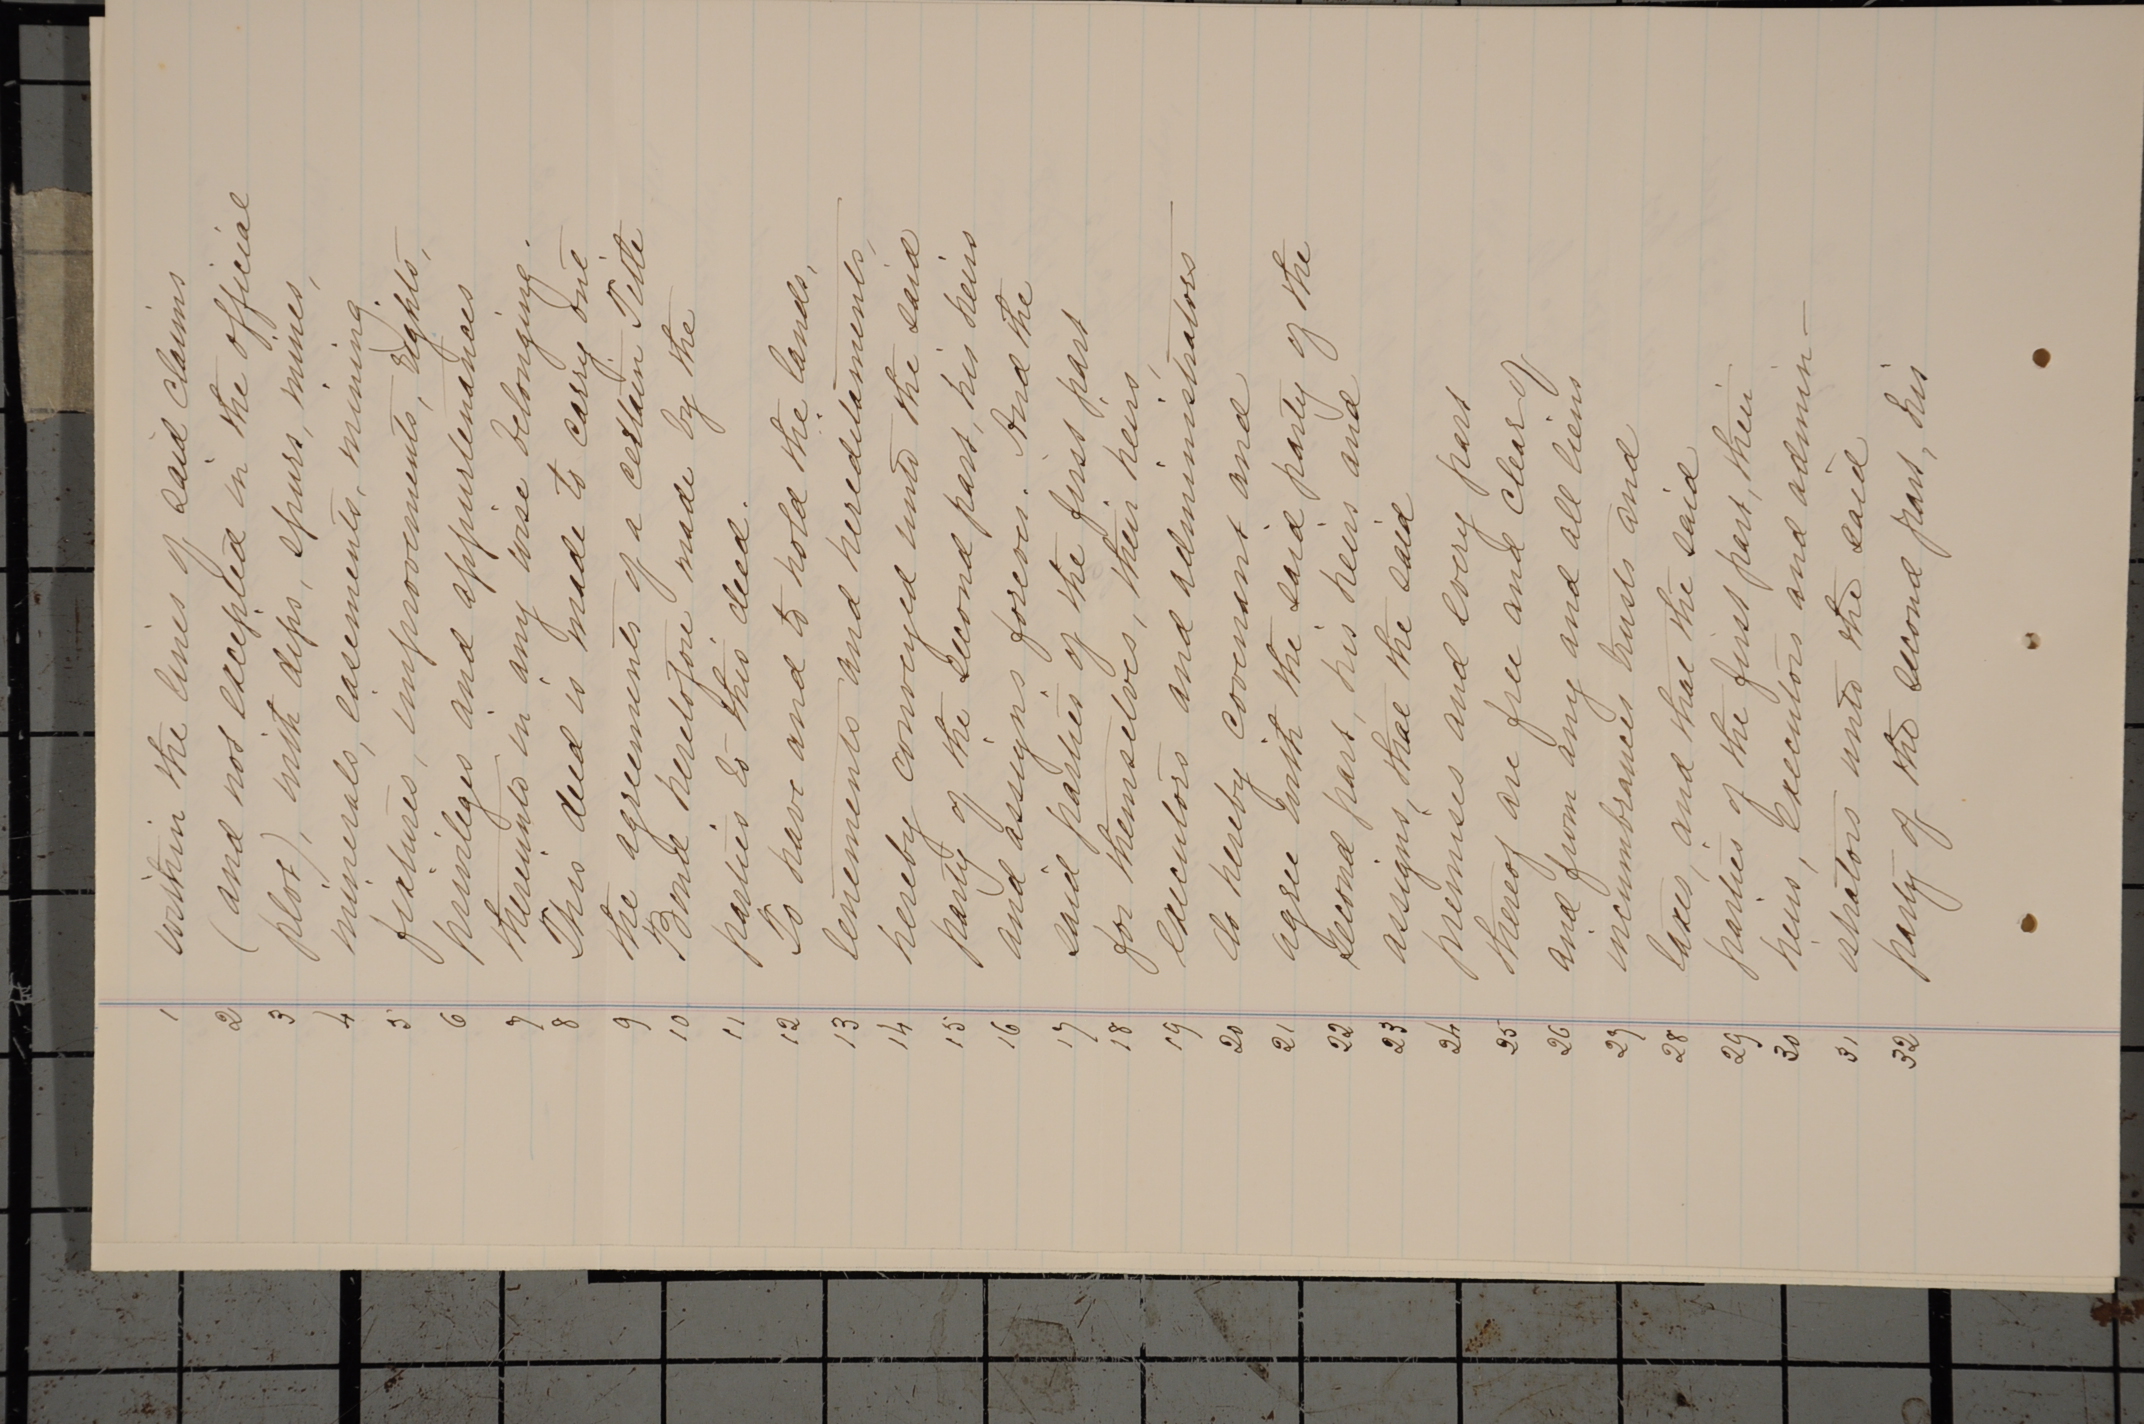 1 within the lines of said claims
2 (and not excepted in the official
3 plot), with dips, spurs, mines,
4 minerals, easements, mining
5 fixtures, improvements, rights,
6 privileges and appurtenances
7 thereunto in any wise belonging.
8 This deed is made to carry out
9 the agreements of a certain Title
10 Bond heretofore made by the
11 parties to this deed.
12 To have and to hold the lands,
13 tenements and hereditaments,
14 hereby conveyed unto the said
15 party of the second part, his heirs
16 and assigns forever. And the
17 said parties of the first part
18 for themselves, their heirs,
19 executors and administrators
20 do hereby covenant and
21 agree with the said party of the
22 second part, his heirs and
23 assigns, that the said
24 premises and every part
25 thereof are free and clear of
26 and from any and all liens
27 incumbrances trusts and
28 taxes, and that the said
29 parties of the first part, their
30 heirs, executors and admin-
31 istrators unto the said
32 party of the second part, his